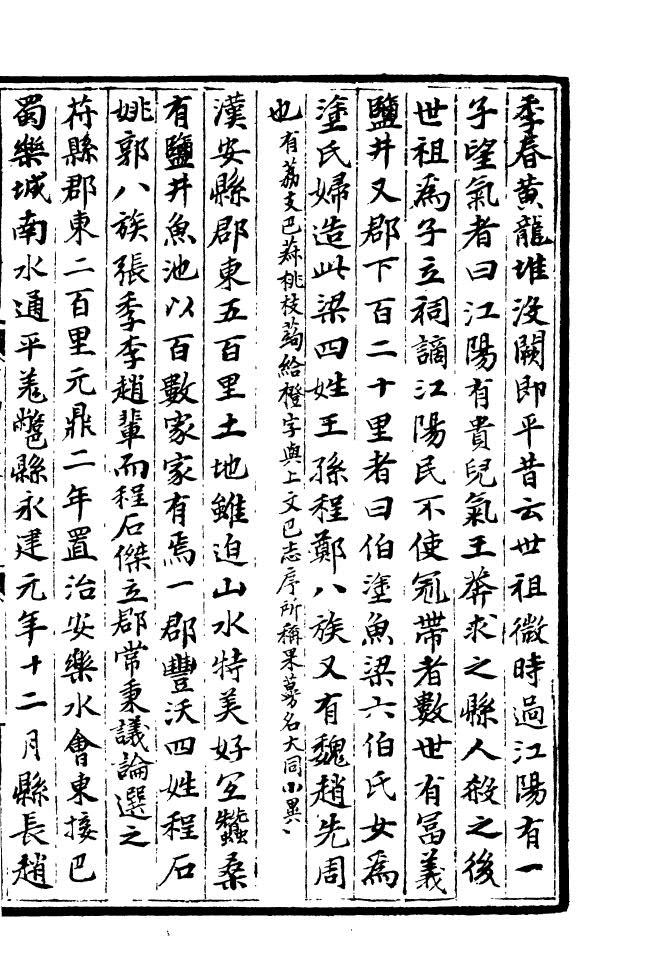 季春黃龍堆沒闕即平昔云世祖微時過江陽有一
子望氣者曰江陽有貴兒氣王莽求之縣人殺之後
世祖爲子立祠謫江陽民不使冠帶者數世有富義
鹽井又郡下百二十里者曰伯塗魚梁云伯氏女爲
塗氏婦造此梁四姓王孫程鄭八族又有魏趙先周
也有荔支巴菽桃枝蒟給橙字與上文巴志序所稱果蓏名大同小異
漢安縣郡東五百里土地雖迫山水特美好宜蠶桑
有鹽井魚池以百數家家有焉一郡豐沃四姓程石
姚郭八族張季李趙輩而程石傑立郡常秉議論選之
苻縣郡東二百里元鼎二年置治安樂水會東接巴
蜀樂城南水通平羗鄨縣永建元年十二月縣長趙